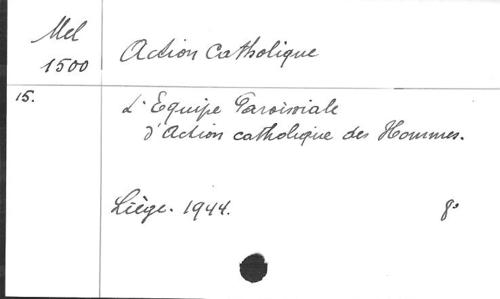 Mel
1500
Action Catholique
15.
L'Equipe Paroissiale
d'Action catholique des Hommes.
Liège. 1944.
8°